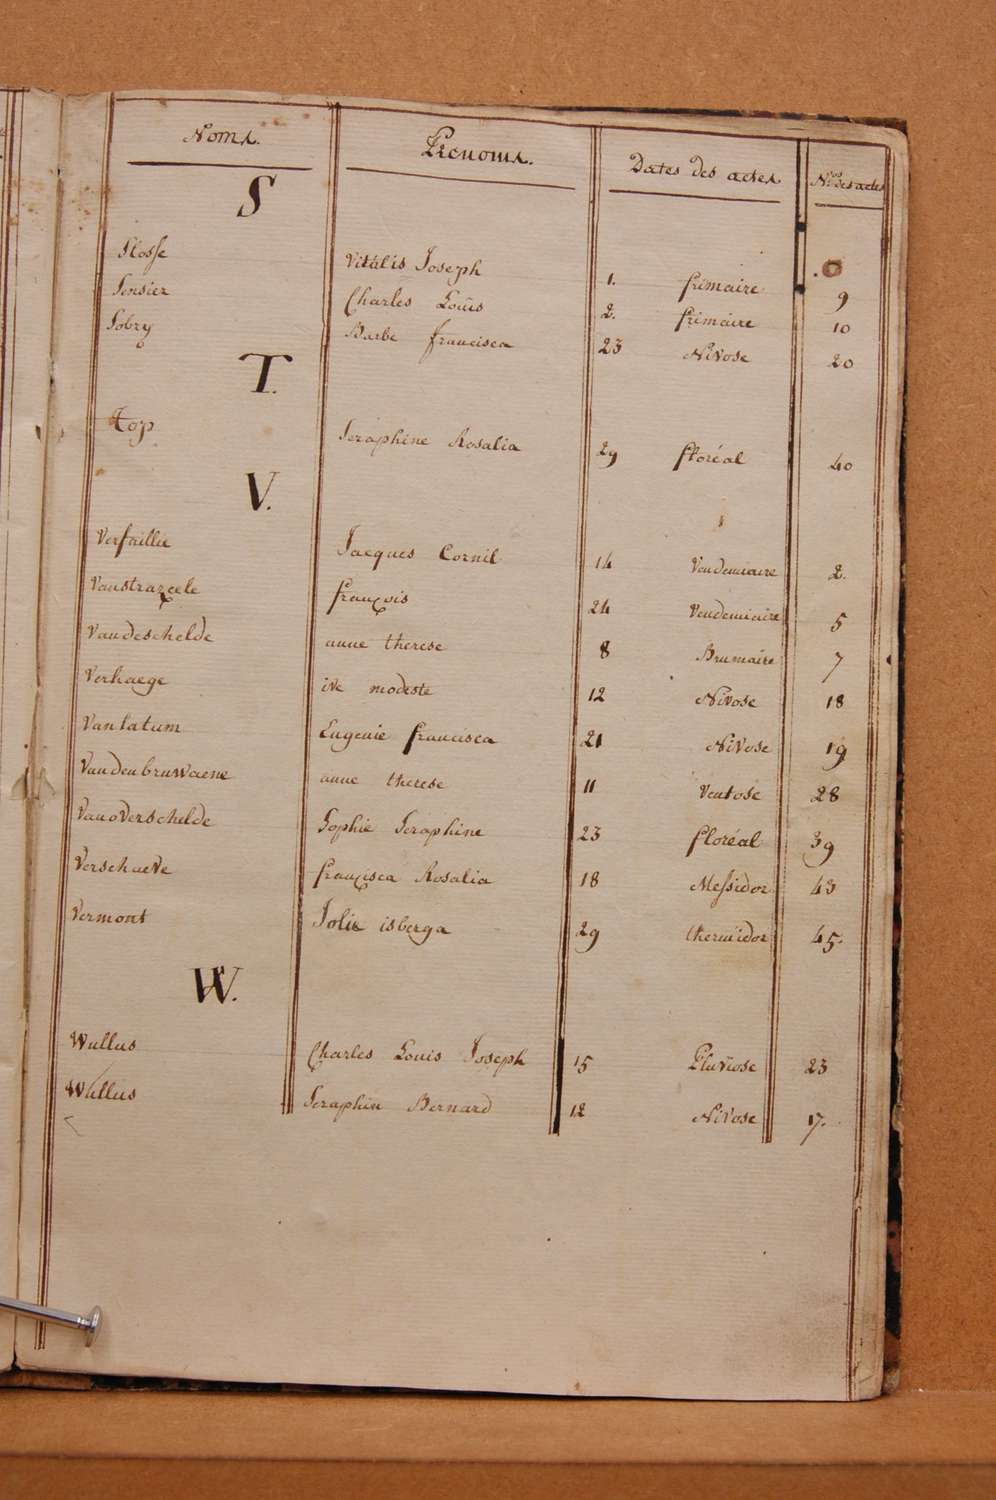 Noms. Prenoms. Dates des actes Nros des actes
S
Slosse Vitalis Joseph 1. frimaire 9
Sensier Charles Louis 2. frimaire 10
Sobry Barbe francisca 23 Nivose 20
T.
Top Seraphine Rosalia 29 floréal 40
V.
Verfaillie Jacques Cornil 14 Vendemiaire 2.
Vanstrazeele françois 24 Vendemiaire 5
Vandeschelde anne therese 8 Brumaire 7
Verhaege ive modeste 12 Nivose 18
Vanlatum Eugenie francisca 21 Nivose 19
Vandenbruwaene anne therese 11 Ventose 28
Vanoverschelde Sophie Seraphine 23 floréal 39
Verschaeve francisca Rosalia 18 Messidor 43
Vermont Jolie isberga 29 thermidor 45.
W.
Wullus Charles Louis Joseph 15 Pluviose 23
Wullus Seraphin Bernard 12 Nivose 17.